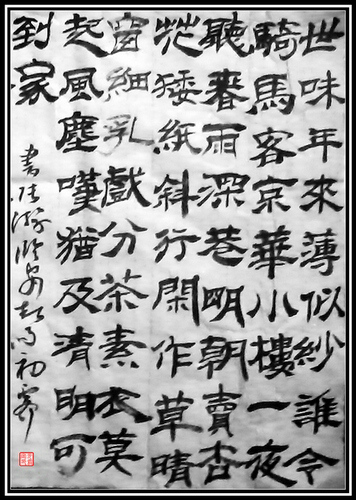 世味年來薄似紗誰令
騎馬客京華小樓一夜
聽春雨深巷明朝賣杏
花矮紙斜行閑作草晴
窗細乳戲分茶素衣莫
起風塵嘆猶及清明可
到家
書陸游臨安春雨初霽